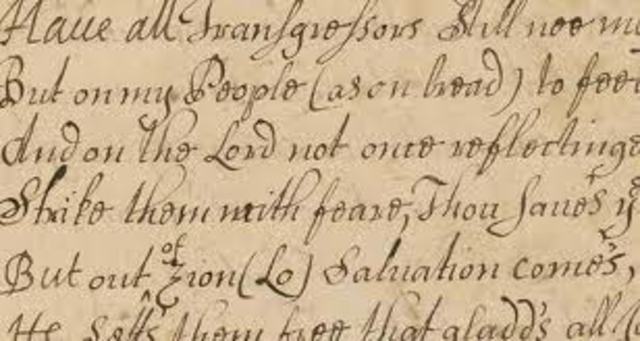 Haue all Transgressors still noe
But on my People (as on bread) to
And on the Lord not once reflectinge
Strike them with feare, Thou saues
But out of Zion (Lo) Saluation comes,
He setts them free that gladds all